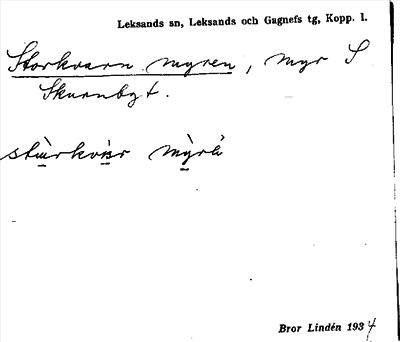 Leksands sn, Leksands och Gagnefs tg, Kopp. l.
Storkvarn myren, myr S
Skurnbyt.
Bror Lindén 1934